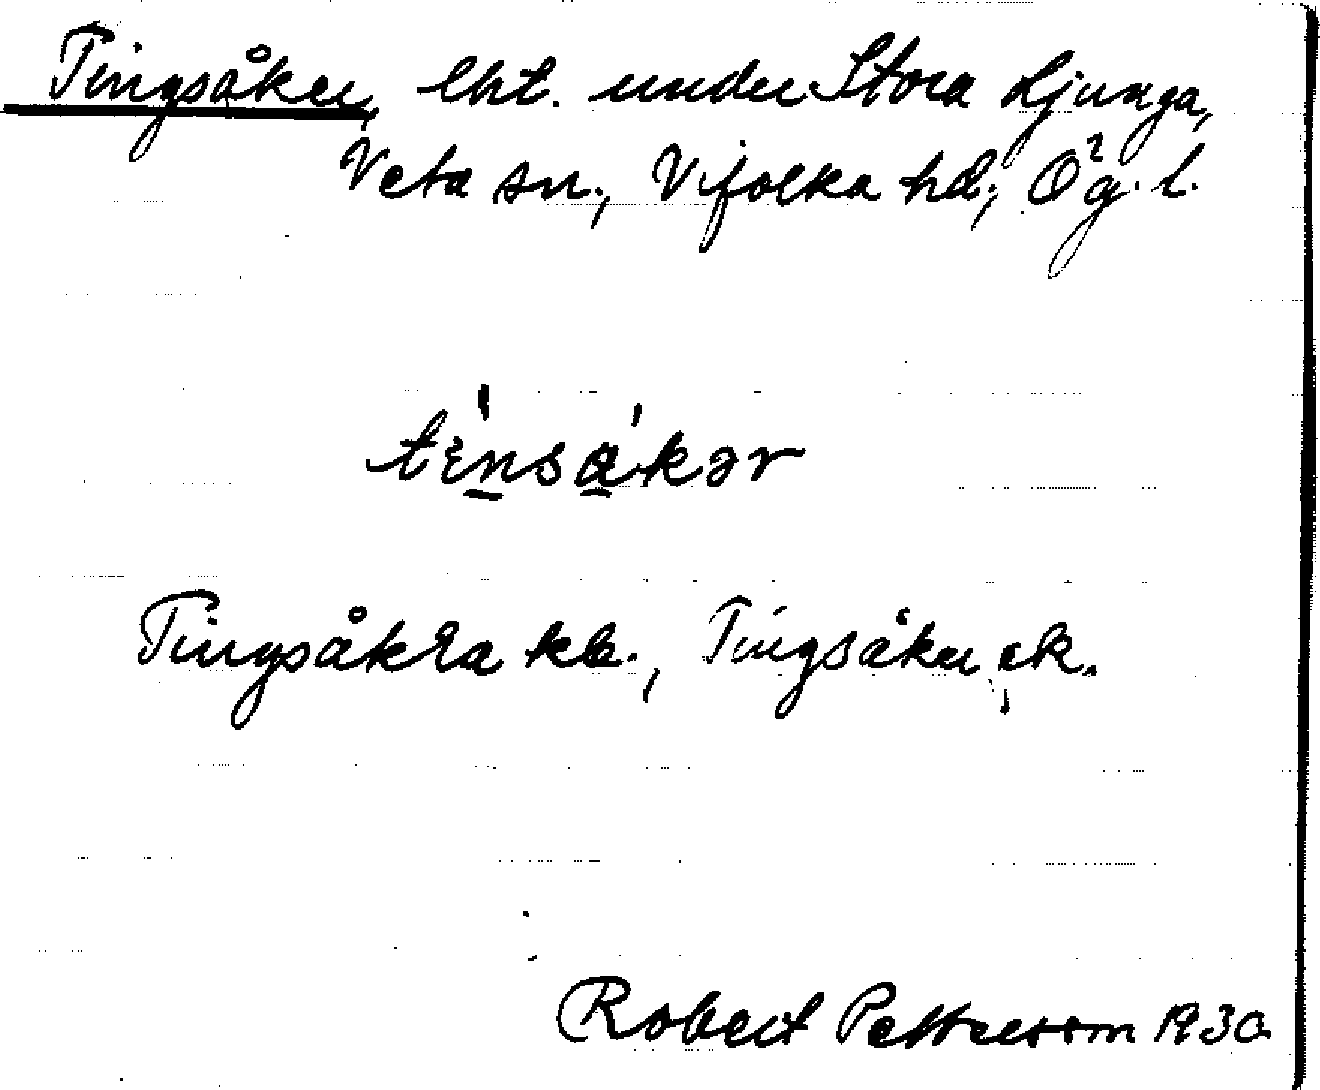 Tingsåker, lht. under Stora Ljunga,
Veta sn., Vifolka hd., Ög. l.
tɛ́nsåkər
Tingsåkra kb., Tingsåker ek.
Robert Pettersson 1930